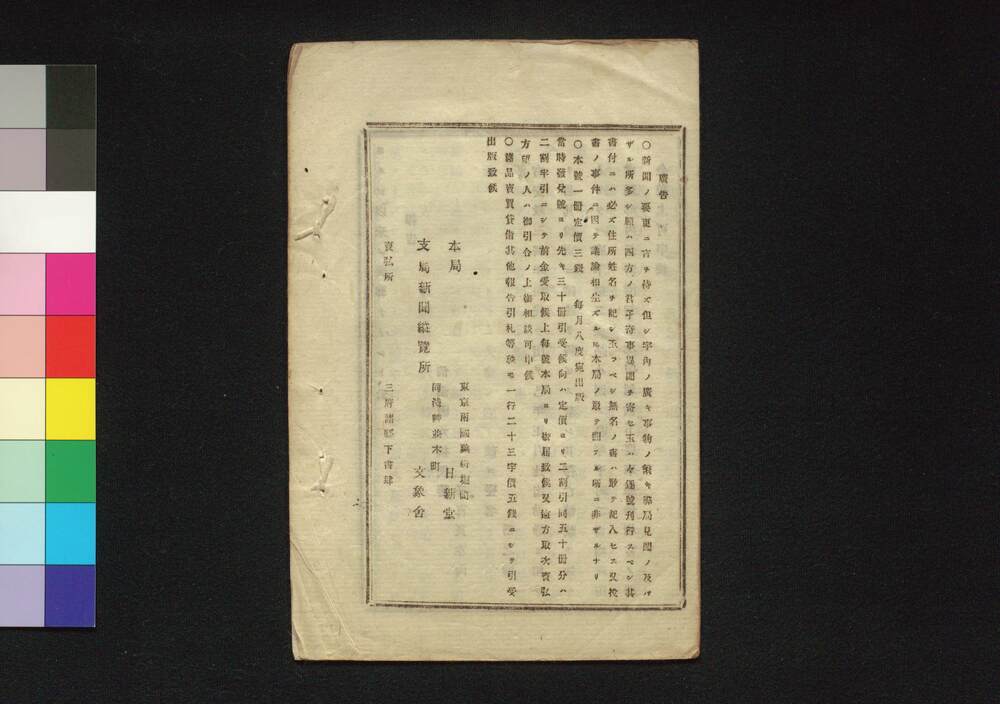 廣告
○新聞ノ要更ニ言ヲ待ズ但シ宇内ノ廣キ事物ノ繁キ弊局見聞ノ及バ
ザル所多シ願ハ四方ノ君子奇事異聞ヲ寄セ玉ハヾ逐號刊行スベシ其
書付ニハ必ズ住所姓名ヲ記シ玉フベシ無名ノ書ハ敢テ記入セス又投
書ノ事件ニ因テ議論相生ズルモ本局ノ敢テ關スル所ニ非ザルナリ
○本號一冊定價三錢 每月八度宛出版
當時發兌號ヨリ先キ三十冊引受候向ハ定價ヨリ二割引同五十冊分ハ
二割半引ニシテ前金受取候上每號本局ヨリ御屆致候又遠方取次賣弘
方望ノ人ハ御引合ノ上御相談可申候
○諸品賣買貸借其他報告引札等總テ一行二十三字價五錢ニシテ引受
出版致候
本局 東京兩國 日新堂
支局新聞縱覽所 並木町 文象舍
賣弘所 三府諸縣下書肆